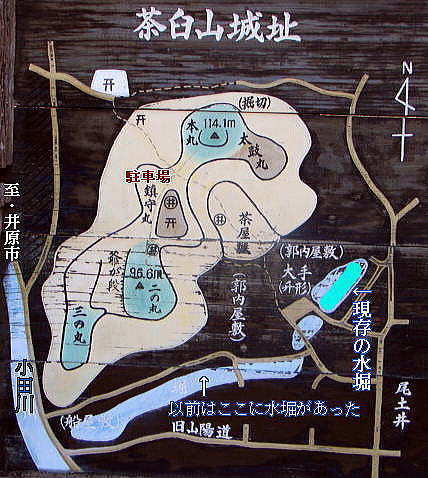 茶臼山城址
N
(掘切)
本丸
114.1m
太鼓丸
駐車場
鎮守丸
至・井原市
茶屋
(郭内屋敷)
大手
(丹形)
(郭内屋敷)
爺が段
96.6m
二の丸
三の丸
←現存の水堀
小田川
↑
以前はここに水堀があった
(船屋敷)
旧山陽道
尾土井